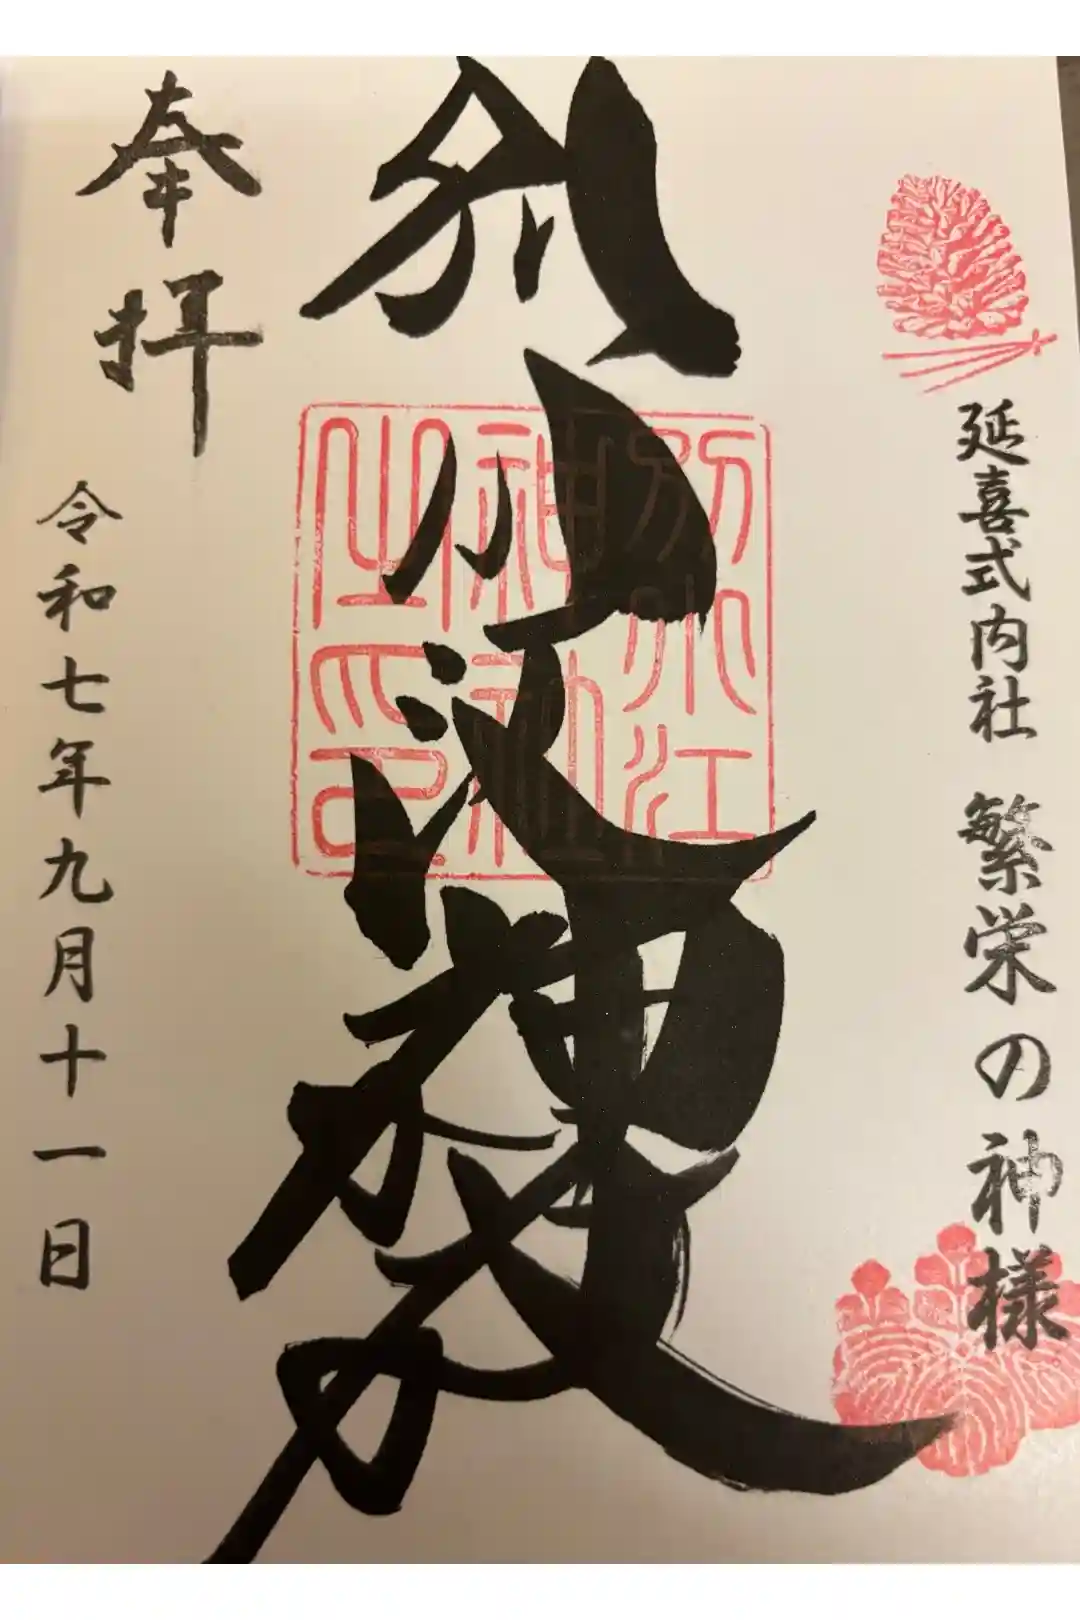 延喜式内社 繁栄の神様
別小江神社
別小江
神社
之印
奉拝
令和七年九月十一日